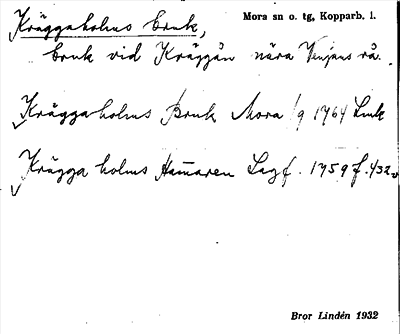 Kräggaholms bruk, Mora sn o. tg, Kopparb. l.
bruk vid Kräggån nära Venjans rå.
Kräggaholms Bruk Mora 1/9 1764 Link
Krägga holms Ham̄aren Lagf. 1759 f. 432
Bror Lindén 1932